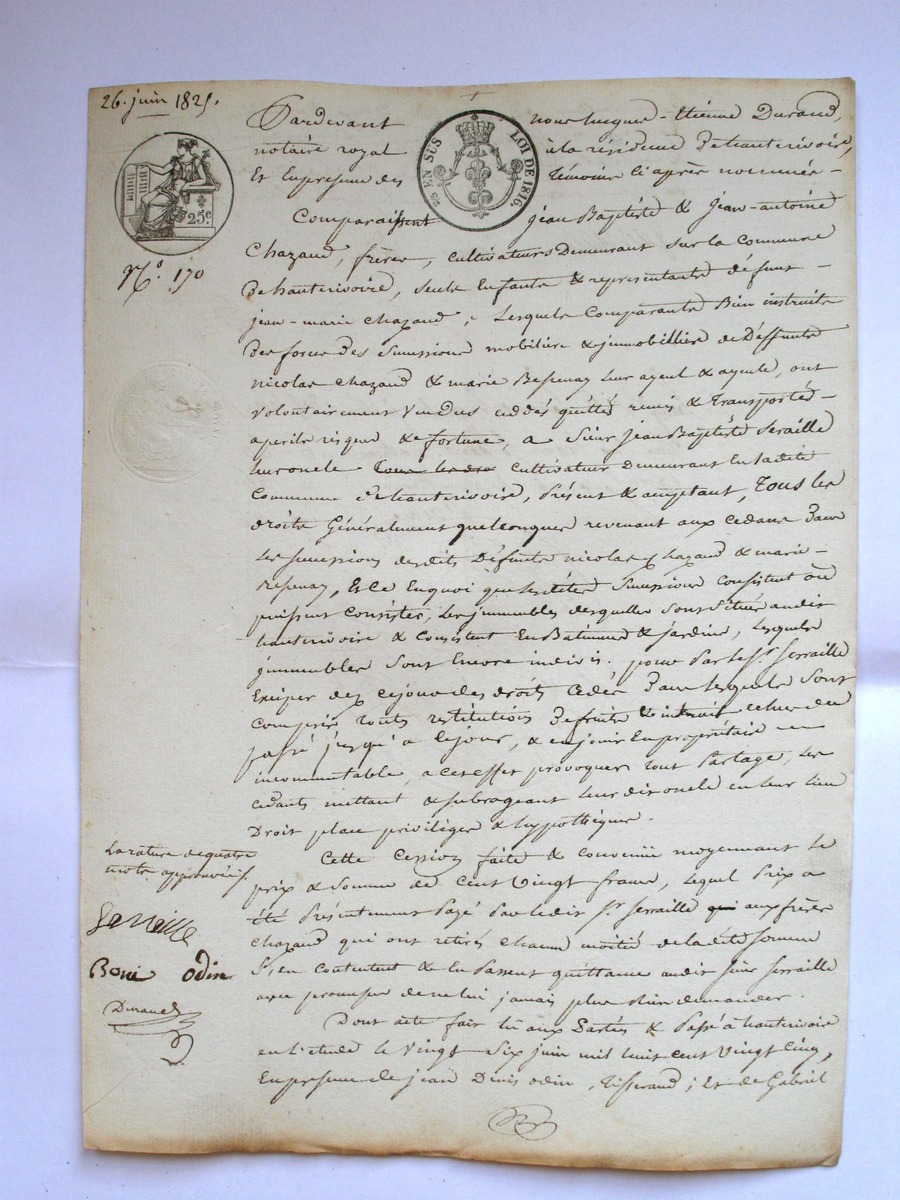 26. juin 1825.
Pardevant nous Jacques-Etienne Durand,
notaire royal à la résidence D'hauterivoire,
Et En presence des témoins ci après nommés -
EN SUS LOI DE 1816.
25c
Comparaissent Jean Baptiste & Jean-antoine
Chazaud, frères, cultivateurs Demeurant sur la commune
N.o 170
De hauterivoire, seuls Enfants & representants défunt -
jean-marie chazaud; Lesquels Comparants Bien instruits
Des forces Des Successions mobilière & jmmobilière de Deffunts
nicolas Chazaud & marie leur ayeul & ayeule, ont
volontairement Vendus cédés quittés remis & Transportés -
a perils risques & fortune, a Sieur jean Baptiste Seraille
leur oncle cultivateur demeurant En ladite
Commune D'hauterivoire, Présent & acceptant, Tous les
droits Généralement quelconques revenant aux cedans Dans
Les successions desdits Défunts nicolas chazaud & marie -
, Et ce En quoi que lesdites Successions consistent ou
puissent Consister, Les jmmeubles desquelles Sont Situés audit
hauterivoire & Consistent En Bâtiments & jardins, Lesquels
jmmeubles Sont Encore indivis. pour Par le Sr. Serraille
Exciper dez ce jour des droits Cédés Dans lesquels Sont
compris toutes restitutions De fruits & echus du
passé jusqu'à ce jour, & en jouir En propriétaire -
incommutable, a cet effet provoquer tout Partage, Les
cédants mettant & subrogeant leur dit oncle en leur lieu
Droit place privilèges & hyppothèques.
La rature de quatre
mots approuvées.
Cette Cession faite & convenue moyennant le
prix & Somme de Cent Vingt francs, lequel Prix a
été Présentement Payé Par ledit Sr. Serraille qui aux frères
Serraille
chazaud qui ont retirés chacun moitié de ladite Somme
Boni odin
S'en contentent & En Passent quittance audit Sieur Serraille
avec promesse de ne lui jamais plus rien demander.
Durand
Dont acte fait lu aux Parties & Passé à hauterivoire
en l'étude le Vingt Six juin mil huit cent Vingt Cinq,
En presence de jean Denis odin, Tisserand; Et de Gabriel